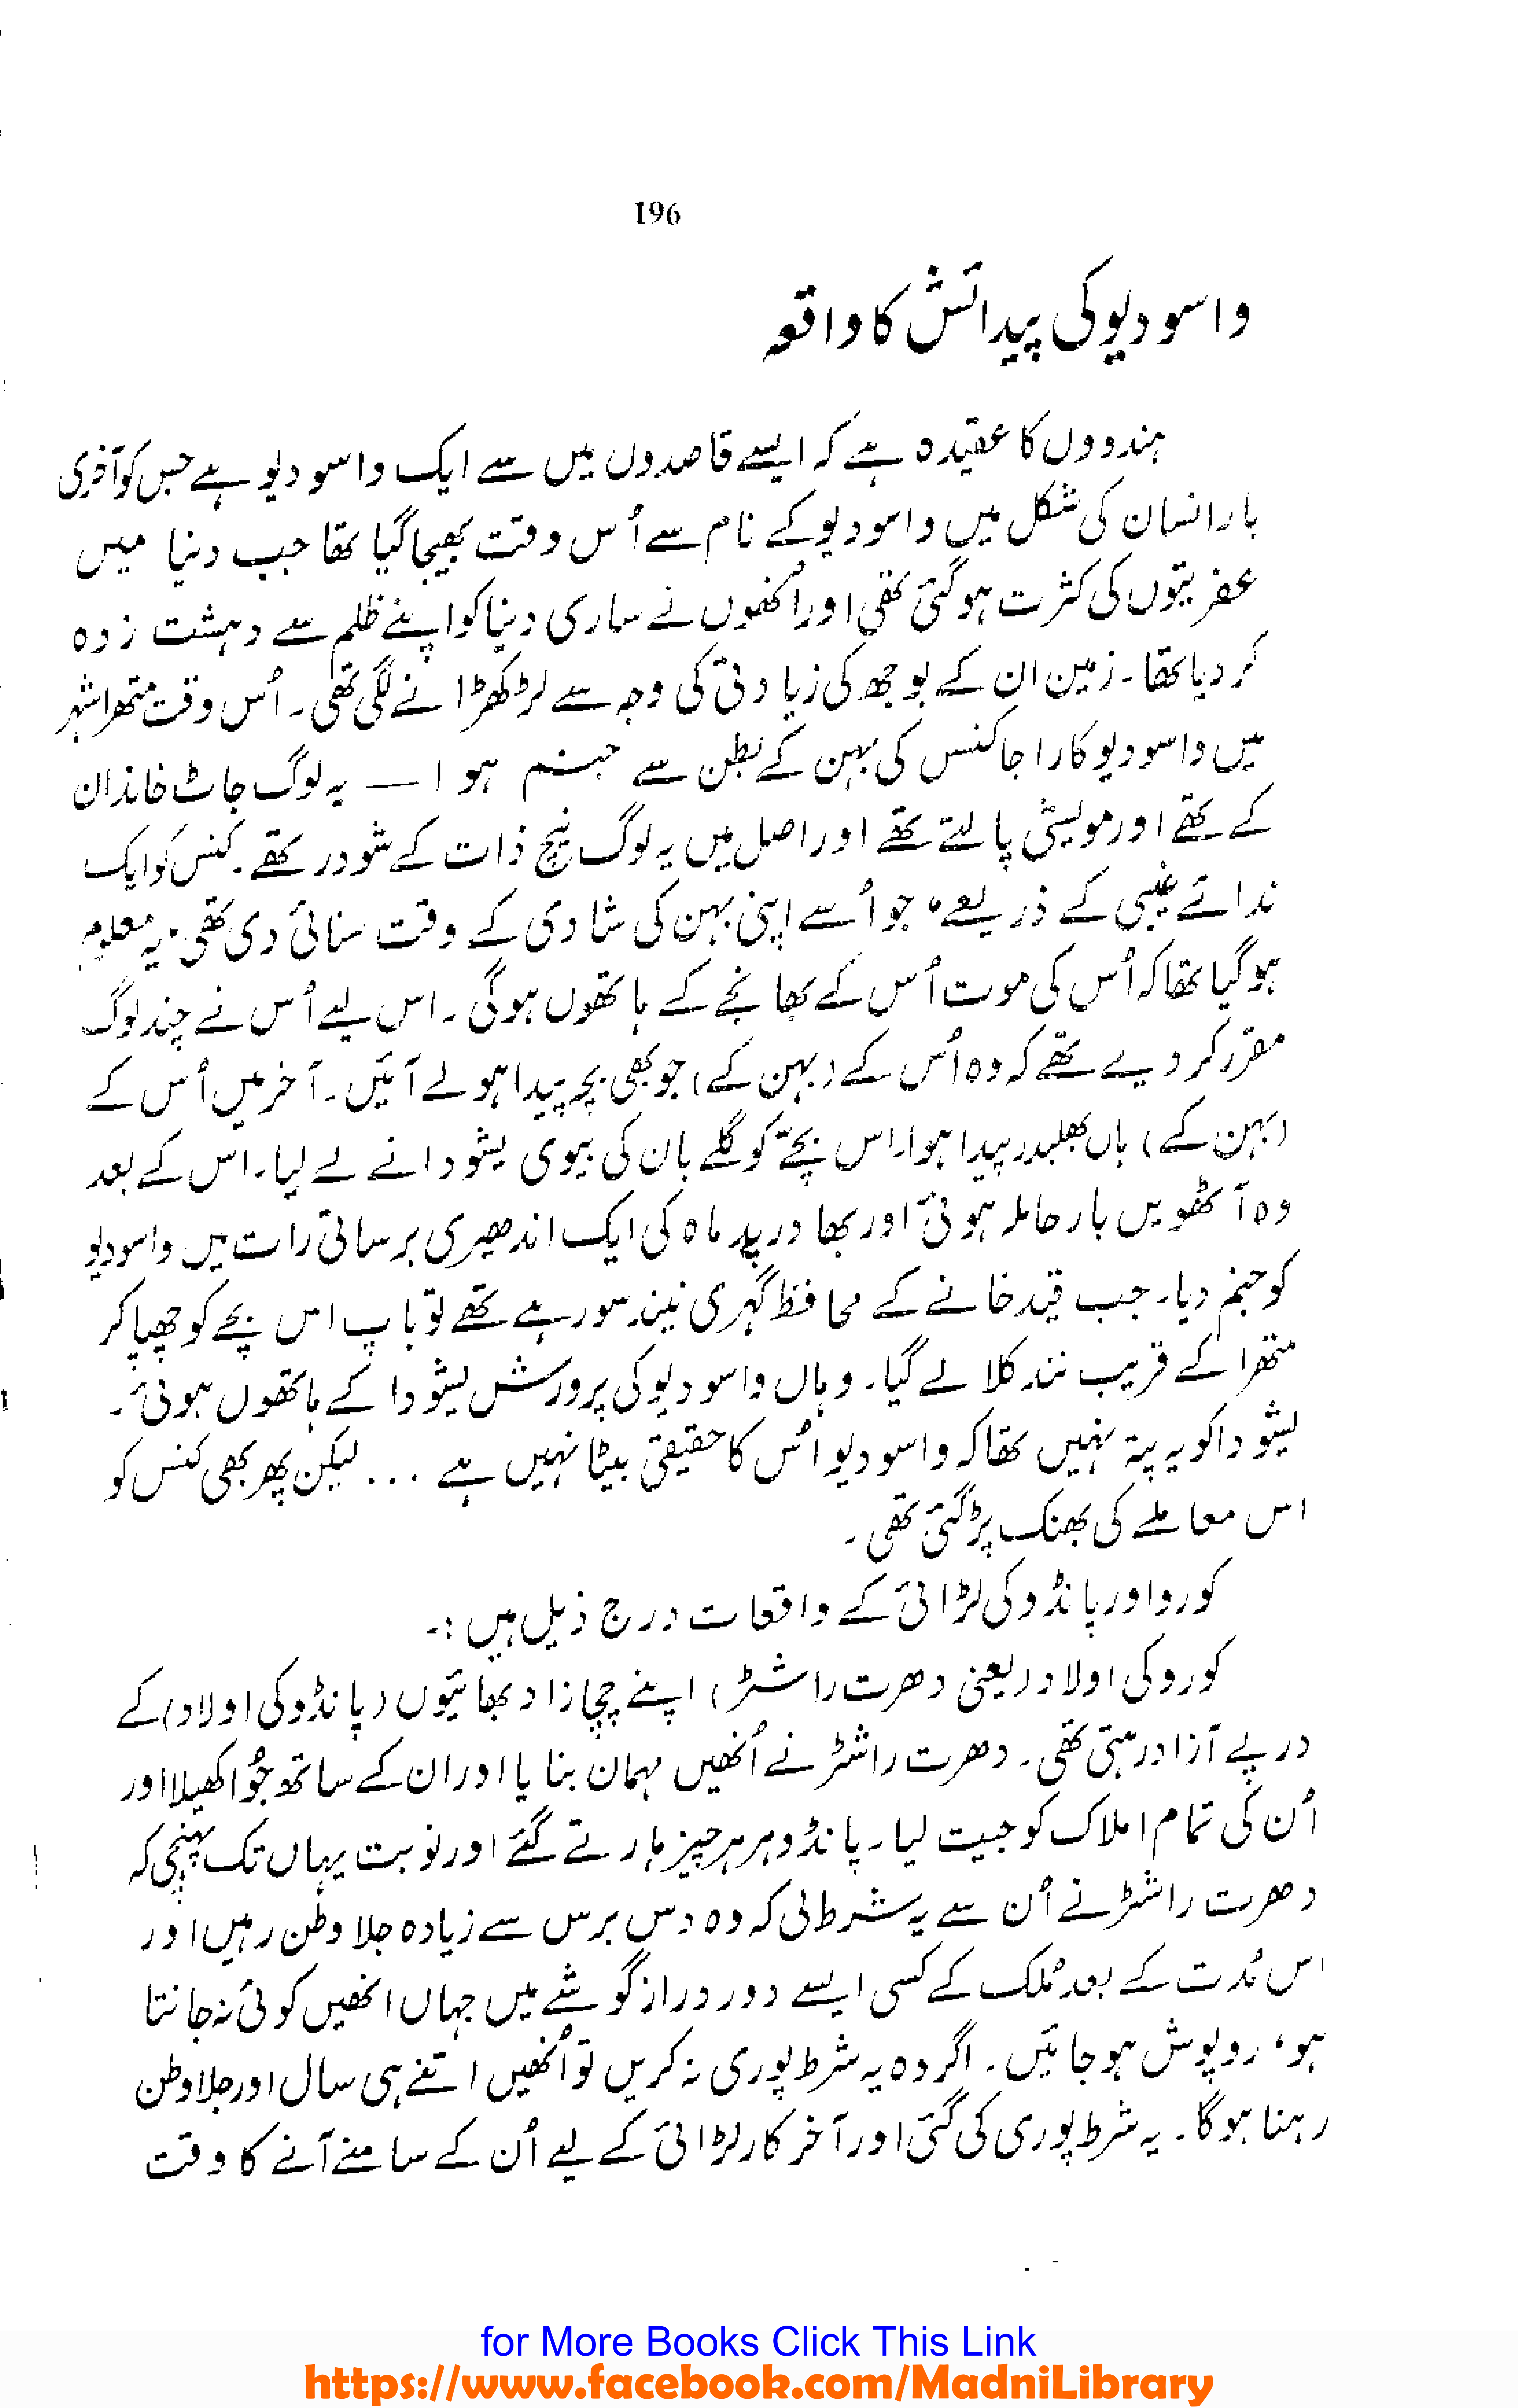 196
واسودیو کی پیدائش کا واقعہ
ہندووں کا عقیدہ ہے کہ ایسے قاصدوں میں سے ایک واسودیو ہے جس کو آخری
بار انسان کی شکل میں واسودیو کے نام سے اُس وقت بھیجا گیا تھا جب دنیا میں
عفریتوں کی کثرت ہوگئی تھی اور اُنھوں نے ساری دنیا کو اپنے ظلم سے دہشت زدہ
کر دیا تھا۔ زمین ان کے بوجھ کی زیادتی کی وجہ سے لڑکھڑانے لگی تھی۔ اُس وقت متھرا شہر
میں واسودیو کا راجا کنس کی بہن کے بطن سے جنم ہوا — یہ لوگ جاٹ خاندان
کے تھے اور مویشی پالتے تھے اور اصل میں یہ لوگ نیچ ذات کے شودر تھے۔ کنس کو ایک
ندائے غیبی کے ذریعے، جو اُسے اپنی بہن کی شادی کے وقت سنائی دی تھی، یہ معلوم
ہوگیا تھا کہ اُس کی موت اُس کے بھانجے کے ہاتھوں ہوگی۔ اس لیے اُس نے چند لوگ
مقرر کر دیے تھے کہ وہ اُس کے (بہن کے) جو بھی بچہ پیدا ہو لے آئیں۔ آخر میں اُس کے
(بہن کے) ہاں بھلبدر پیدا ہوا۔ اس بچّے کو گلے بان کی بیوی یشودا نے لے لیا۔ اس کے بعد
وہ آٹھویں بار حاملہ ہوئی اور بھادرپد ماہ کی ایک اندھیری برساتی رات میں واسودیو
کو جنم دیا۔ جب قید خانے کے محافظ گہری نیند سو رہے تھے تو باپ اس بچے کو چھپا کر
متھرا کے قریب نند کلا لے گیا۔ وہاں واسودیو کی پرورش یشودا کے ہاتھوں ہوئی۔
یشودا کو یہ پتہ نہیں تھا کہ واسودیو اُس کا حقیقی بیٹا نہیں ہے ... لیکن پھر بھی کنس کو
اس معاملے کی بھنک پڑ گئی تھی۔
کورو اور پانڈو کی لڑائی کے واقعات درج ذیل ہیں :۔
کورو کی اولاد (یعنی دھرت راشٹر) اپنے چچا زاد بھائیوں (پانڈو کی اولاد) کے
درپے آزار رہتی تھی۔ دھرت راشٹر نے اُنھیں مہمان بنایا اور ان کے ساتھ جُوا کھیلا اور
اُن کی تمام املاک کو جیت لیا۔ پانڈو ہر ہر چیز ہارتے گئے اور نوبت یہاں تک پہنچی کہ
دھرت راشٹر نے اُن سے یہ شرط لی کہ وہ دس برس سے زیادہ جلا وطن رہیں اور
اس مُدت کے بعد مُلک کے کسی ایسے دور دراز گوشے میں جہاں انھیں کوئی نہ جانتا
ہو، روپوش ہوجائیں۔ اگر وہ یہ شرط پوری نہ کریں تو اُنھیں اتنے ہی سال اور جلا وطن
رہنا ہوگا۔ یہ شرط پوری کی گئی اور آخر کار لڑائی کے لیے اُن کے سامنے آنے کا وقت
for More Books Click This Link
https://www.facebook.com/MadniLibrary